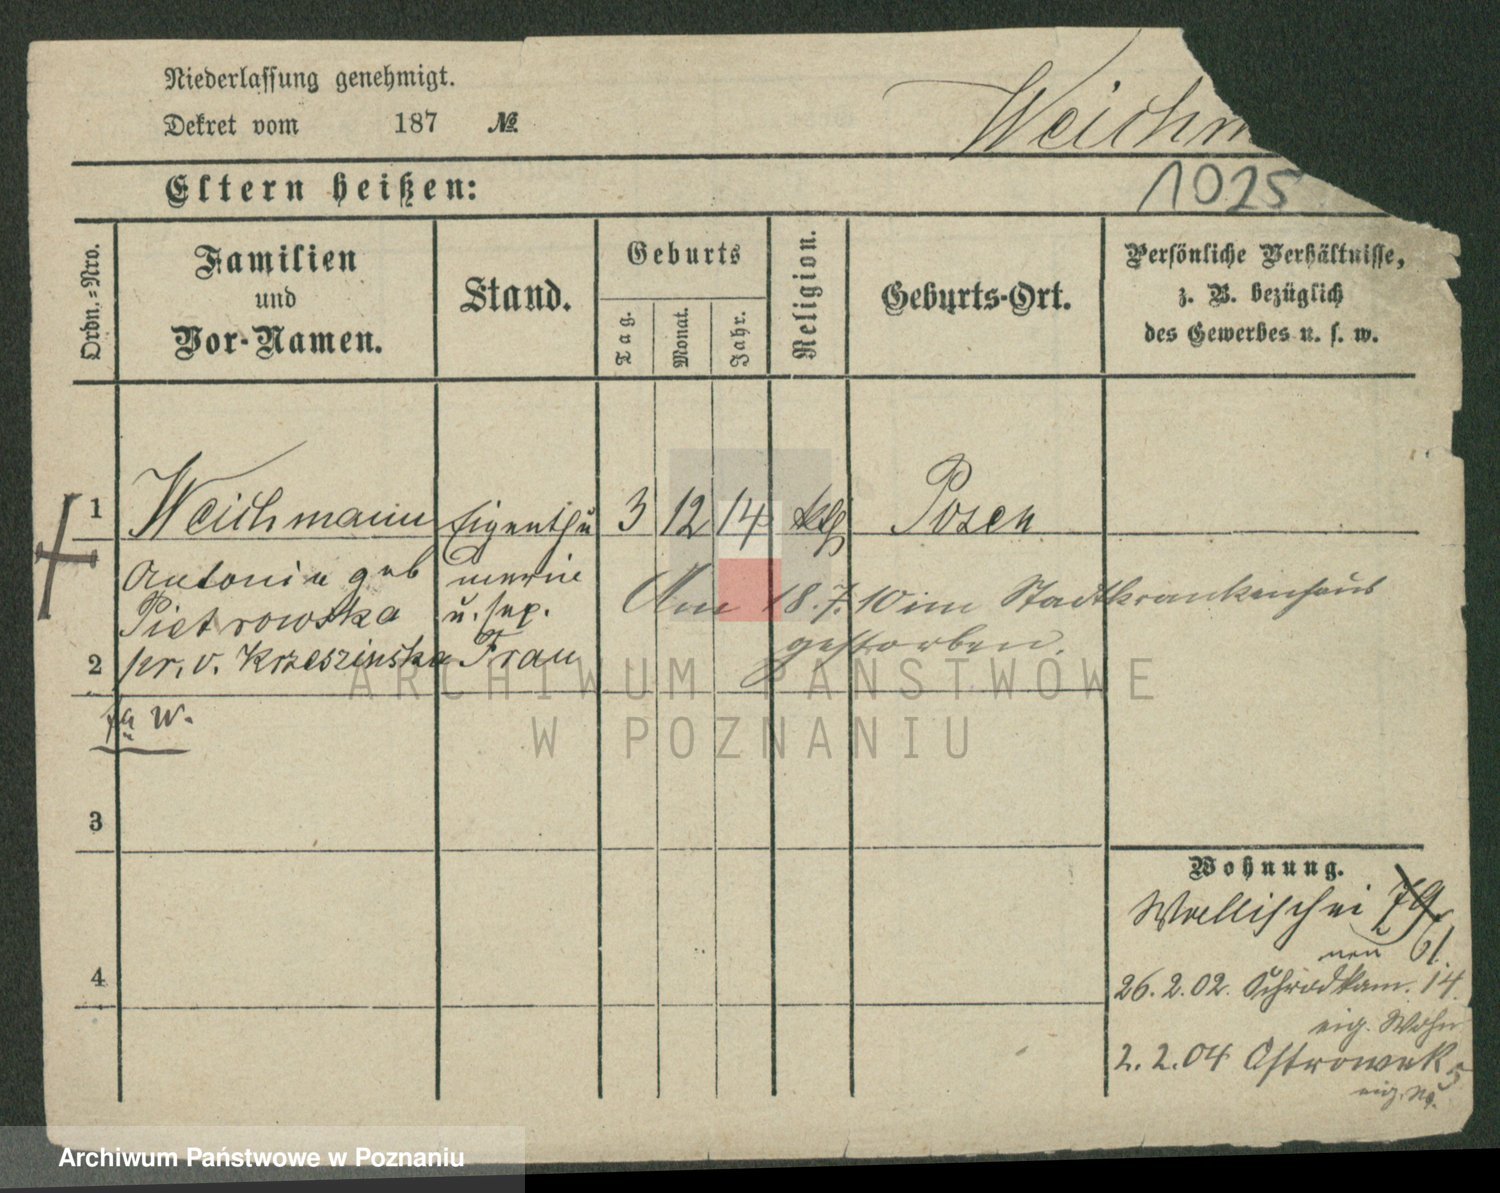 Niederlassung genehmigt.
Dekret vom 187 №
Weichm
Eltern heißen:
1025
Ordn.=Nro.
Familien
und
Vor-Namen.
Stand.
Geburts
Tag.
Monat.
Jahr.
Religion.
Geburts-Ort.
Persönliche Verhältnisse,
z. B. bezüglich
des Gewerbes u. s. w.
1 Weichmann Eigenthü 3 12 14 ktl Posen
Antonie geb
Pietrowska u. sep.
Am 18.7.10 im Stadtkrankenhaus
gestorben.
2 pr. v. Krzeszinska Frau
W.
3
4
Wohnung.
Wallischei 79
neu 61.
26.2.02. Schrodkam. 14.
eig. Wohn
2.2.04 Ostrowek 5
ARCHIWUM PAŃSTWOWE
W POZNANIU
Archiwum Państwowe w Poznaniu